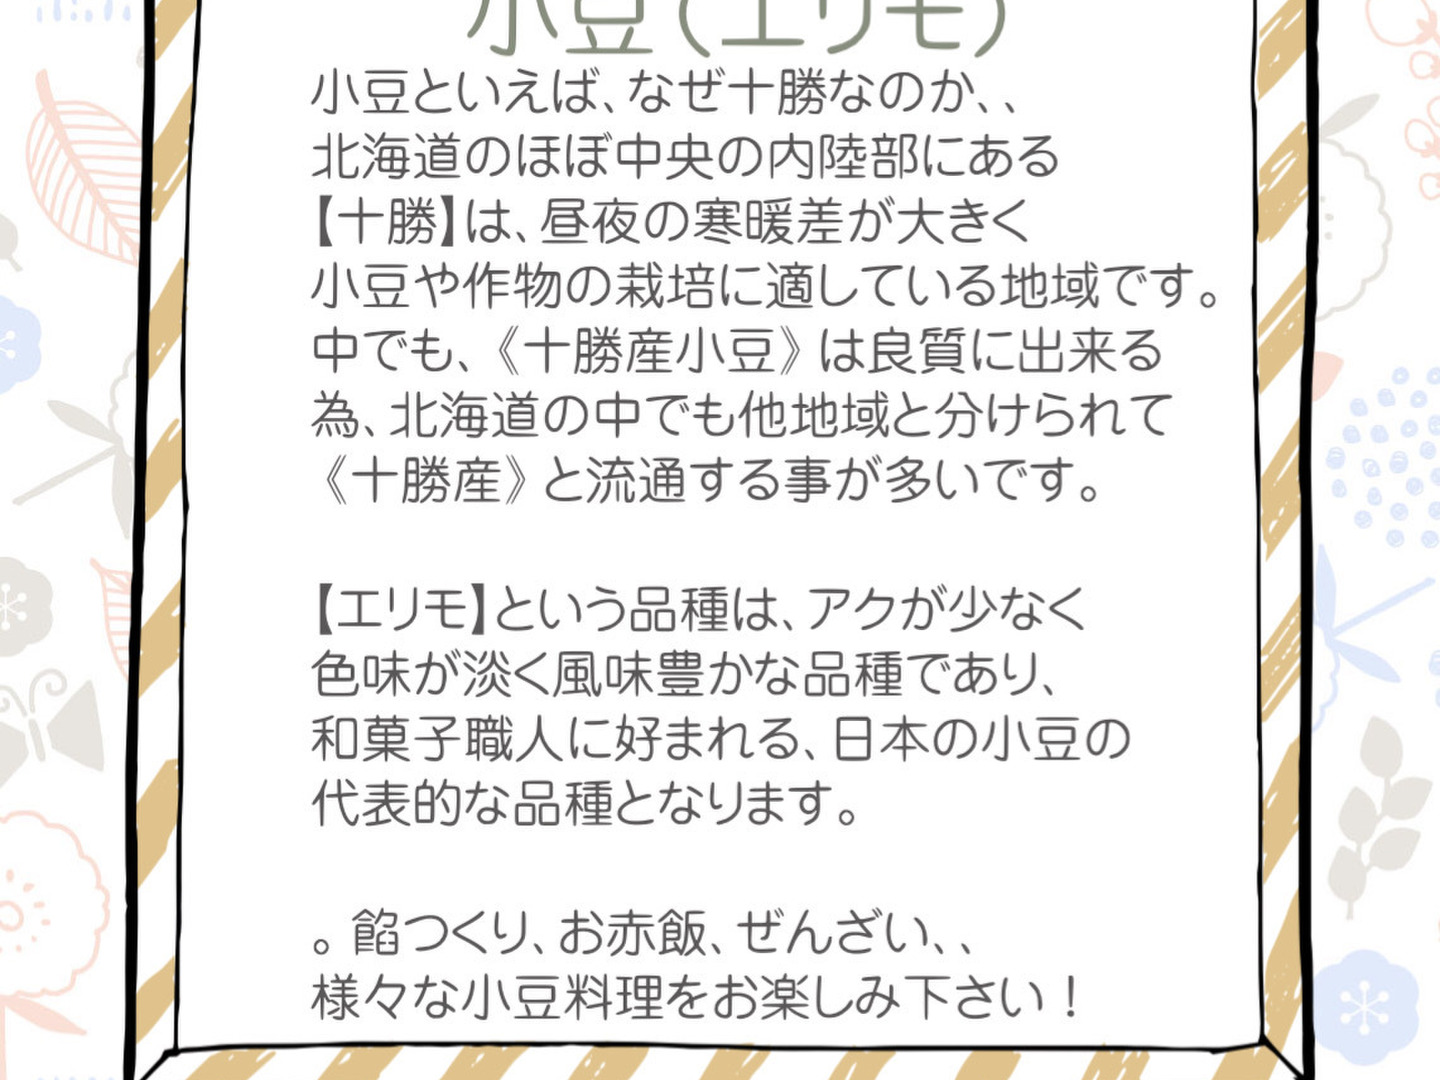 小豆(エリモ)
小豆といえば、なぜ十勝なのか、、
北海道のほぼ中央の内陸部にある
【十勝】は、昼夜の寒暖差が大きく
小豆や作物の栽培に適している地域です。
中でも、《十勝産小豆》は良質に出来る
為、北海道の中でも他地域と分けられて
《十勝産》と流通する事が多いです。
【エリモ】という品種は、アクが少なく
色味が淡く風味豊かな品種であり、
和菓子職人に好まれる、日本の小豆の
代表的な品種となります。
。餡つくり、お赤飯、ぜんざい、、
様々な小豆料理をお楽しみ下さい！